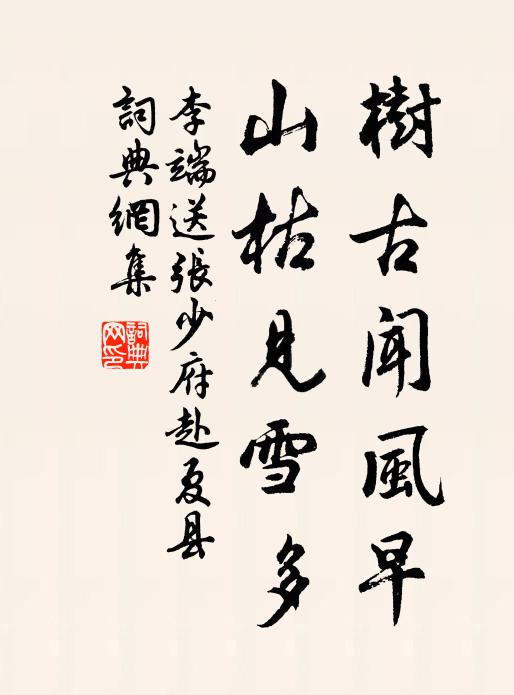 樹古聞風早
山枯見雪多
李端送張少府赴夏县
詞典網集
詞典網印